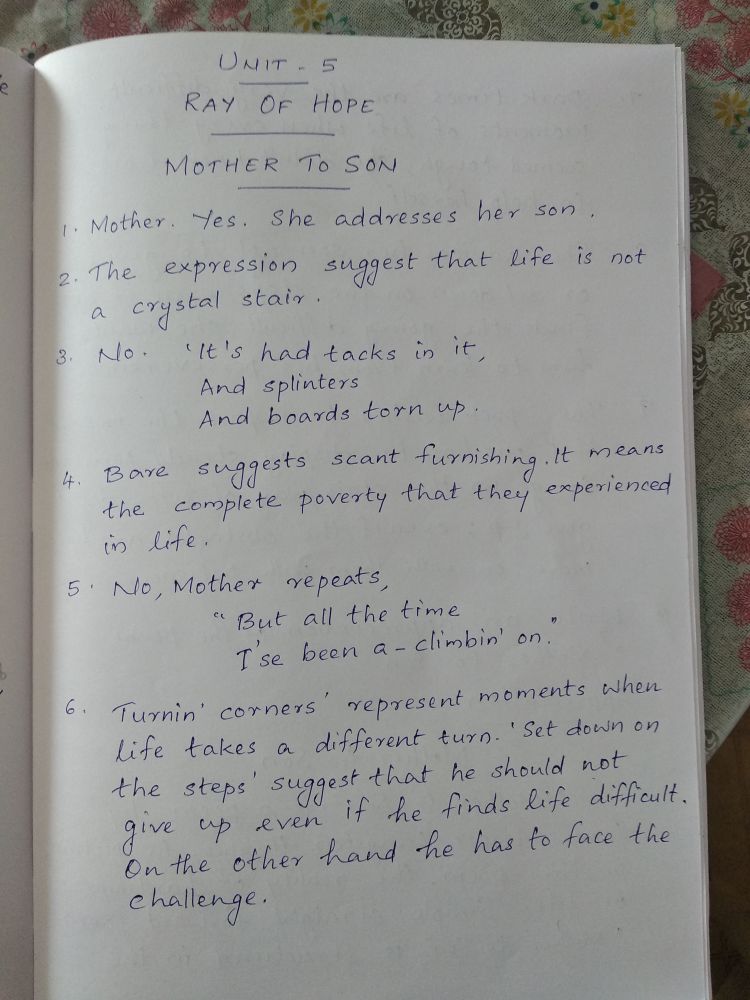 UNIT - 5
RAY OF HOPE
MOTHER TO SON
1. Mother. Yes. She addresses her son.
2. The expression suggest that life is not
a crystal stair.
3. No. 'It's had tacks in it,
And splinters
And boards torn up.
4. Bare suggests scant furnishing. It means
the complete poverty that they experienced
in life.
5. No, Mother repeats,
"But all the time
I'se been a-climbin' on."
6. Turnin' corners' represent moments when
life takes a different turn. 'Set down on
the steps' suggest that he should not
give up even if he finds life difficult.
On the other hand he has to face the
challenge.